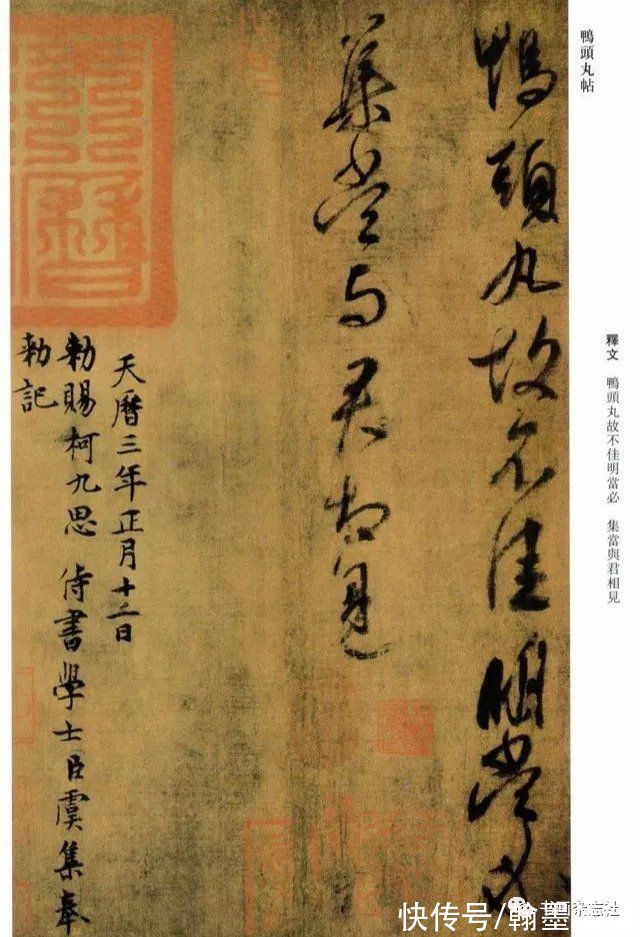 鴨頭丸帖
釋文 鴨頭丸故不佳明當必 集當與君相見
鴨頭丸故不佳明當必
集當與君相見
天曆三年正月十二日
勑賜柯九思 侍書學士臣虞集奉
勑記
天曆
快传号/翰墨
书画杂志社